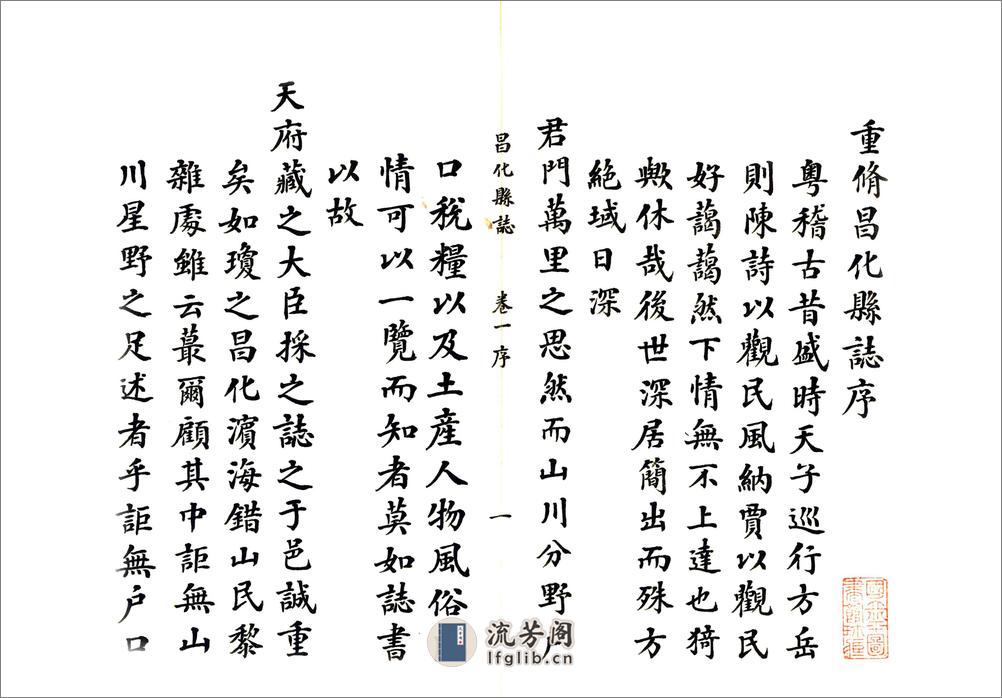 重脩昌化縣誌序
粵稽古昔盛時天子巡行方岳
則陳詩以觀民風納賈以觀民
好藹藹然下情無不上達也猗
歟休哉後世深居簡出而殊方
絕域日深
君門萬里之思然而山川分野戶
昌化縣誌 卷一序 一
口稅糧以及土產人物風俗
情可以一覽而知者莫如誌書
以故
天府藏之大臣採之誌之于邑誠重
矣如瓊之昌化濵海錯山民黎
雜處雖云蕞爾顧其中詎無山
川星野之足述者乎詎無戶口
流芳阁
lfglib.cn